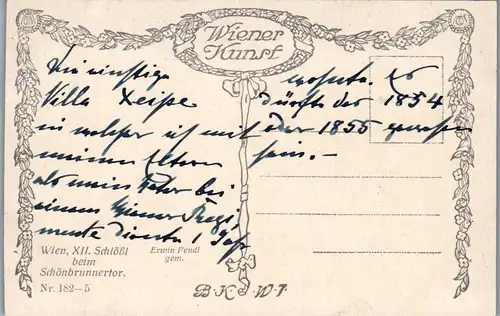 Wiener
Kunst
Die einstige
Villa Xeipe
in welcher ich mit
meinen Eltern
als mein Vater bei
einem Wiener Regi,
mente diente 1 Jahr
wohnte. Es
dürfte das 1854
oder 1855 gewesen
sein. –
Wien, XII. Schlößl
beim
Schönbrunnertor.
Nr. 182—5
Erwin Pendl
gem.
B.K.W.I